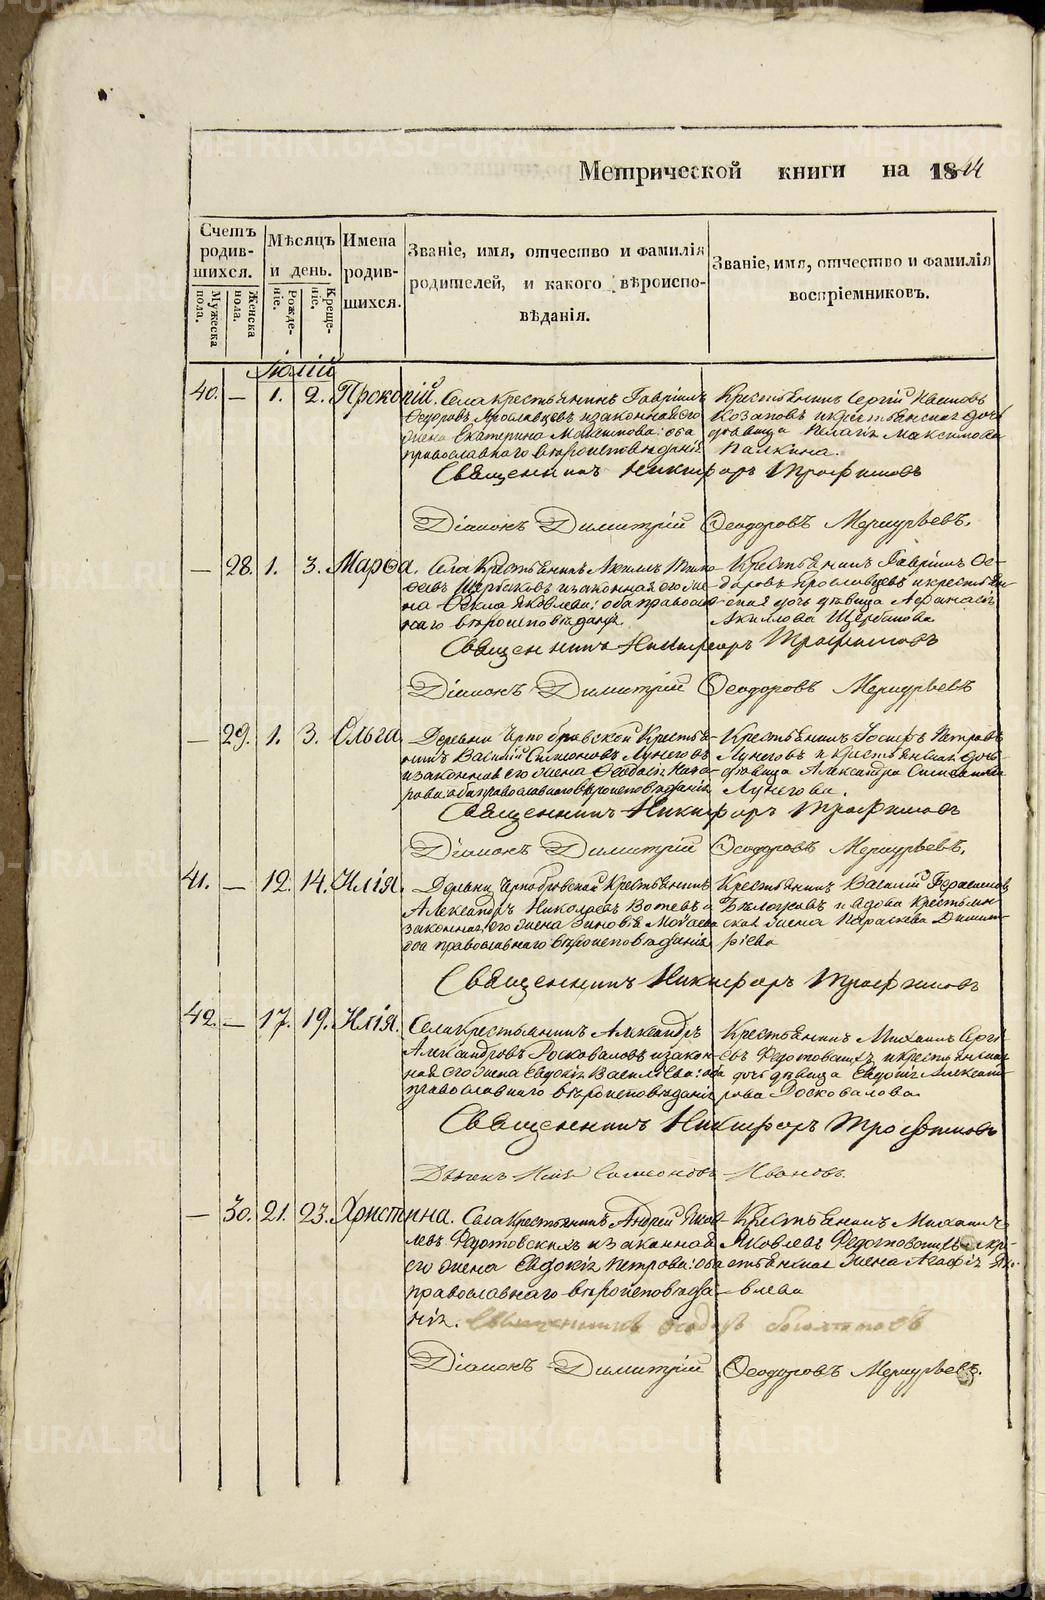 Метрической книги на 1844
Счетъ родившихся.
Мужеска пола.
Женска пола.
Мѣсяцъ и день.
Рожденіе.
Крещеніе.
Имена родившихся.
Званіе, имя, отчество и фамилія
родителей, и какого вѣроиспо-
вѣданія.
Званіе, имя, отчество и фамилія
воспріемниковъ.
Іюлій
40. — 1. 2. Прокопій. Села крестьянинъ Гавріилъ
Ѳедоровъ Ярославцевъ и законная его
жена Екатерина Максимова: оба
православнаго вѣроисповѣданія
Крестьянинъ Сергій
Козаковъ и крестьянская дочь
дѣвица Пелагія Максимова
Палкина.
Священникъ Никифоръ Трофимовъ
Діаконъ Димитрій Ѳеодоровъ Меркурьевъ.
— 28. 1. 3. Марѳа. Села Крестьянинъ
Щербаковъ и законная его же-
на Яковлева: оба православ-
наго вѣроисповѣданія.
Крестьянинъ Гавріилъ Ѳе-
доровъ Ярославцевъ и крестьян-
ская дочь дѣвица Афанасія
Акилова Щербакова
Священникъ Никифоръ Трофимовъ
Діаконъ Димитрій Ѳеодоровъ Меркурьевъ
— 29. 1. 3. Ольга. Деревни Чернобровской Крестья-
нинъ Василій Симеоновъ Лунеговъ
и законная его жена Ѳеодосія Наза-
рова: оба православнаго вѣроисповѣданія
Крестьянинъ Іосифъ Петровъ
Лунеговъ и крестьянская дочь
дѣвица Александра Симеонова
Лунегова.
Священникъ Никифоръ Трофимовъ
Діаконъ Димитрій Ѳеодоровъ Меркурьевъ.
41. — 12. 14. Илія. Деревни Чернобровской Крестьянинъ
Александръ Николаевъ и
законная его жена Зиновія
оба православнаго вѣроисповѣданія
Крестьянинъ Василій Герасимовъ
и вдова крестьян-
ская жена Параскева Димит-
ріева
Священникъ Никифоръ Трофимовъ
42. — 17. 19. Илія. Села крестьянинъ Александръ
Александровъ Росковаловъ и закон-
ная его жена Евдокія Васильева: оба
православнаго вѣроисповѣданія
Крестьянинъ Михаилъ Сергі-
евъ Федотовскихъ и крестьянская
дочь дѣвица Евдокія Александ-
рова Росковалова
Священникъ Никифоръ Трофимовъ
Дьячекъ Илія Симеоновъ Ивановъ.
— 30. 21. 23. Христина. Села Крестьянинъ Андрей Яков-
левъ Федотовскихъ и законная
его жена Евдокія Петрова: оба
православнаго вѣроисповѣда-
нія.
Крестьянинъ Михаилъ
Яковлевъ Федотовскихъ и кре-
стьянская жена Агафія Як-
влева
Священникъ Ѳеодоръ
Діаконъ Димитрій Ѳеодоровъ Меркурьевъ.
METRIKI.GASO-URAL.RU